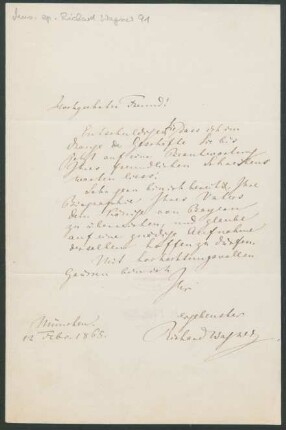 Mus. ep. Richard Wagner 91
Hochgeehrter Freund!
Entschuldigen Sie, dass ich im
Drange der Geschäfte Sie bis
jetzt auf eine Beantwortung
Ihres freundlichen Schreibens
warten liess.
Sehr gern bin ich bereit, Ihre
Biographie Ihres Vaters
dem Könige von Bayern
zu überreichen, und glaube
auf eine gnädige Aufnahme
derselben hoffen zu dürfen.
Mit hochachtungsvollen
Grüssen bin ich
Ihr
ergebenster
Richard Wagner
München
12 Febr. 1865.